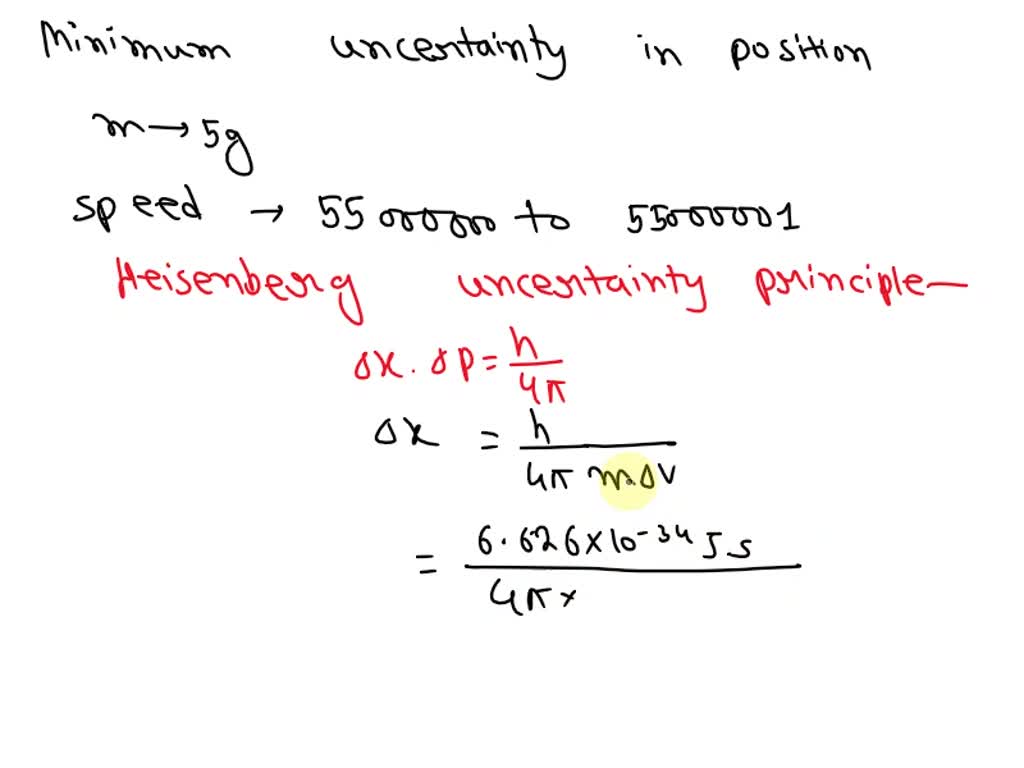 Minimum uncertainty in position
m → 5g
speed → 55000000 to 55000001
Heisenberg uncertainty principle—
Δx . Δp = h/4π
Δx = h/4π m.Δv
= 6.626×10-34 Js/4π×